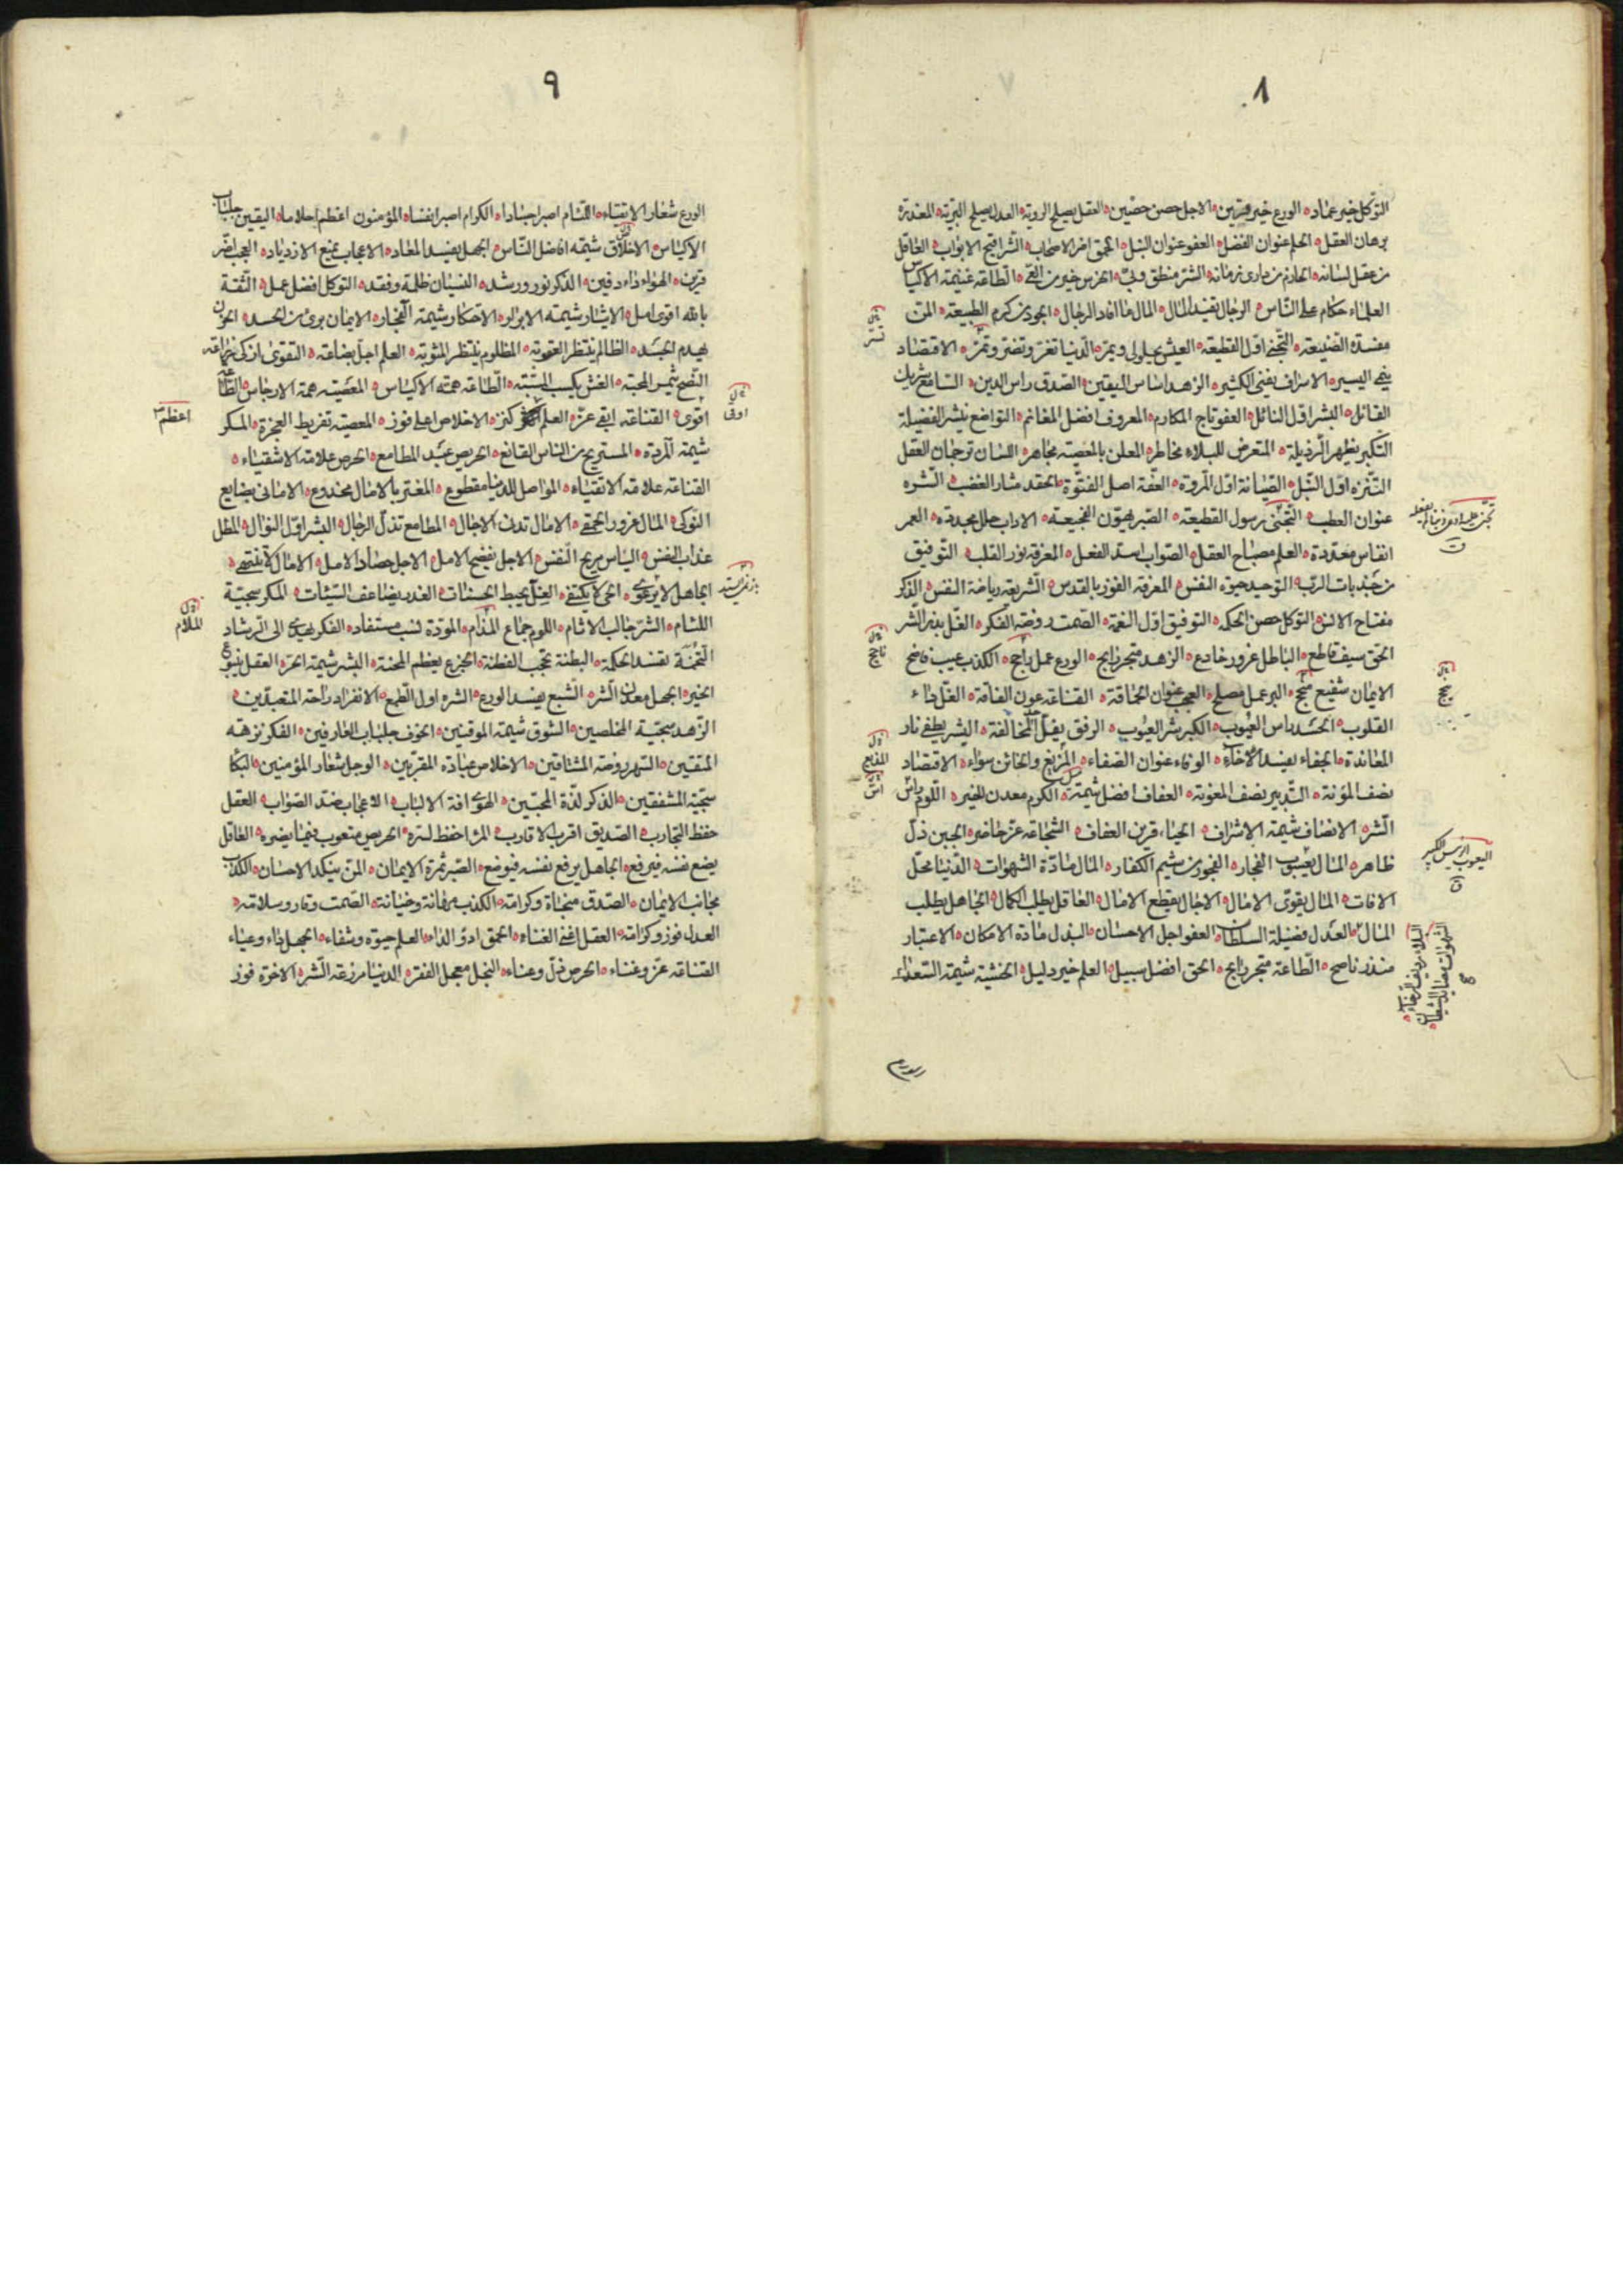 ٨
التوكل خير عماد ه الورع خير قرين ه الاجل حصن حصين ه العقل يصلح الروية ه العدل يصلح البرية ه المعذرة
برهان العقل ه الحلم عنوان الفضل ه العفو عنوان النبل ه الحمق اضر الاصحاب ه الشر اقبح الابواب ه العاقل
من عقل لسانه ه الحازم من دارى زمانه ه الشر منطق وبى ه الخرس خير من العى ه الطاعة غنيمة الاكياس
العلماء حكام على الناس ه الرجال تفيد المال ه المال ما افاد الرجال ه الجود من كرم الطبيعة ه المن
مفسدة الصنيعة ه التجنى اول القطيعة ه العيش يحلو لى ويمر ه الدنيا تغر وتضر وتمر ه الاقتصاد
ينمى اليسير ه الاسراف يفنى الكثير ه الزهد اساس اليقين ه الصدق راس الدين ه السامع شريك
القائل ه البشر اول النائل ه العفو تاج المكارم ه المعروف افضل المغانم ه التواضع ينشر الفضيلة
التكبر يظهر الرذيلة ه المتعرض للبلاء مخاطر ه المعلن بالمعصية مجاهر ه اللسان ترجمان العقل
التنزه اول النبل ه الصيانة اول المروة ه العفة اصل الفتوة ه الحقد مثار الغضب ه الشره
عنوان العطب ه التجنى رسول القطيعة ه الصبر يهون الفجيعة ه الاداب حلل مجددة ه العمر
انفاس معددة ه العلم مصباح العقل ه الصواب اسد الفعل ه المعرفة نور القلب ه التوفيق
من جذبات الرب ه التوحيد حيوة النفس ه المعرفة الفوز بالقدس ه الشريعة رياضة النفس ه الذكر
مفتاح الانس ه التوكل حصن الحكمة ه التوفيق اول النعمة ه الصمت روضة الفكر ه الغل بذر الشر
الحق سيف قاطع ه الباطل غرور خادع ه الزهد متجر رابح ه الورع عمل راجح ه الكذب عيب فاضح
الايمان شفيع منجح ه البر عمل مصلح ه العجب عنوان الحماقة ه القناعة عون الفاقة ه الغل داء
القلوب ه الحسد راس العيوب ه الكبر شر العيوب ه الرفق يفل حد المخالفة ه البشر يطفى نار
المعاندة ه الجفاء يفسد الاخاء ه الوفاء عنوان الصفاء ه المذيع والخائن سواء ه الاقتصاد
نصف المؤنة ه التدبير نصف المعونة ه العفاف افضل شيمة ه الكرم معدن الخير ه اللوم راس
الشر ه الانصاف شيمة الاشراف ه الحياء قرين العفاف ه الشجاعة عز حاضر ه الجبن ذل
ظاهر ه المال يعسوب الفجار ه الفجور من شيم الكفار ه المال مادة الشهوات ه الدنيا محل
الافات ه المال يقوى الامال ه الاجال يقطع الامال ه العاقل يطلب الكمال ه الجاهل يطلب
المال ه العدل فضيلة السلطان ه العفو اجل الاحسان ه البذل مادة الامكان ه الاعتبار
منذر ناصح ه الطاعة متجر رابح ه الحق افضل سبيل ه العلم خير دليل ه الخشية شيمة السعداء
تستر
ناجح
ينجح
المذيع
اس
اليعسوب الرئيس الكبير
البلاء رديف الرخاء ه
الشهوات مصايد الشيطان ه
٩
الورع شعار الاتقياء ه اللئام اصبر اجسادا ه الكرام اصبر انفسا ه المؤمنون اعظم احلاما ه اليقين جلباب
الاكياس ه الاخلاق شيمة افاضل الناس ه الجهل يفسد المعاد ه الاعجاب يمنع الازدياد ه العجب اضر
قرين ه الهواء داء دفين ه الذكر نور ورشد ه النسيان ظلمة وفقد ه التوكل افضل عمل ه الثقة
بالله اقوى امل ه الايثار شيمة الابرار ه الاحتكار شيمة الفجار ه الايمان برئ من الحسد ه الحزن
يهدم الجسد ه الظالم ينتظر العقوبة ه المظلوم ينتظر المثوبة ه العلم اجل بضاعة ه التقوى ازكى زراعة
النصح يثمر المحبة ه الغش يكسب المسبة ه الطاعة همة الاكياس ه المعصية همة الارجاس ه الطاعة
اقوى ه القناعة ابقى عز ه العلم كنز ه الاخلاص اعلى فوز ه المعصية تفريط العجزة ه المكر
شيمة المردة ه المستريح من الناس القانع ه الحريص عبد المطامع ه الحرص علامة الاشقياء ه
القناعة علامة الاتقياء ه المواصل للدنيا مقطوع ه المغتر بالامال مخدوع ه الامانى بضايع
النوكى ه المال غرور الحمقى ه الامال تدنى الاجال ه المطامع تذل الرجال ه البشر اول النوال ه المطل
عذاب النفس ه الياس يريح النفس ه الاجل يفضح الامل ه الاجل حصاد الامل ه الامال لا تنتهى ه
الجاهل لا يرعوى ه الحى لا يكتفى ه الغل يحبط الحسنات ه الغدر يضاعف السيئات ه المكر سجية
اللئام ه الشر جالب الاثام ه اللوم جماع المذام ه المودة نسب مستفاد ه الفكر يهدى الى الرشاد
التخمة تفسد الحكمة ه البطنة تحجب الفطنة ه الجزع يعظم المحنة ه البشر شيمة الحر ه العقل ينبوع
الخير ه الجهل معدن الشر ه الشبع يفسد الورع ه الشره اول الطمع ه الانفراد راحة المتعبدين ه
الزهد سجية المخلصين ه الشوق شيمة الموقنين ه الخوف جلباب العارفين ه الفكر نزهة
المتقين ه السهر روضة المشتاقين ه الاخلاص عبادة المقربين ه الوجل شعار المؤمنين ه البكاء
سجية المشفقين ه الذكر لذة المحبين ه الهوى افة الالباب ه الاعجاب ضد الصواب ه العقل
حفظ التجارب ه الصديق اقرب الاقارب ه المرء احفظ لسره ه الحريص متعوب فيما يضره ه العاقل
يضع نفسه فيرفع ه الجاهل يرفع نفسه فيوضع ه الصبر ثمرة الايمان ه المن ينكد الاحسان ه الكذب
مجانب الايمان ه الصدق منجاة وكرامة ه الكذب مهانة وخيانة ه الصمت وقار وسلامة ه
العدل فوز وكرامة ه العقل اغنى الغناء ه الحمق ادوء الداء ه العلم حيوة وشفاء ه الجهل داء وعياء
القناعة عز وغناء ه الحرص ذل وعناء ه البخل معجل الفقر ه الدنيا مزرعة الشر ه الاخرة فوز
اوقى
اعظم
الملام